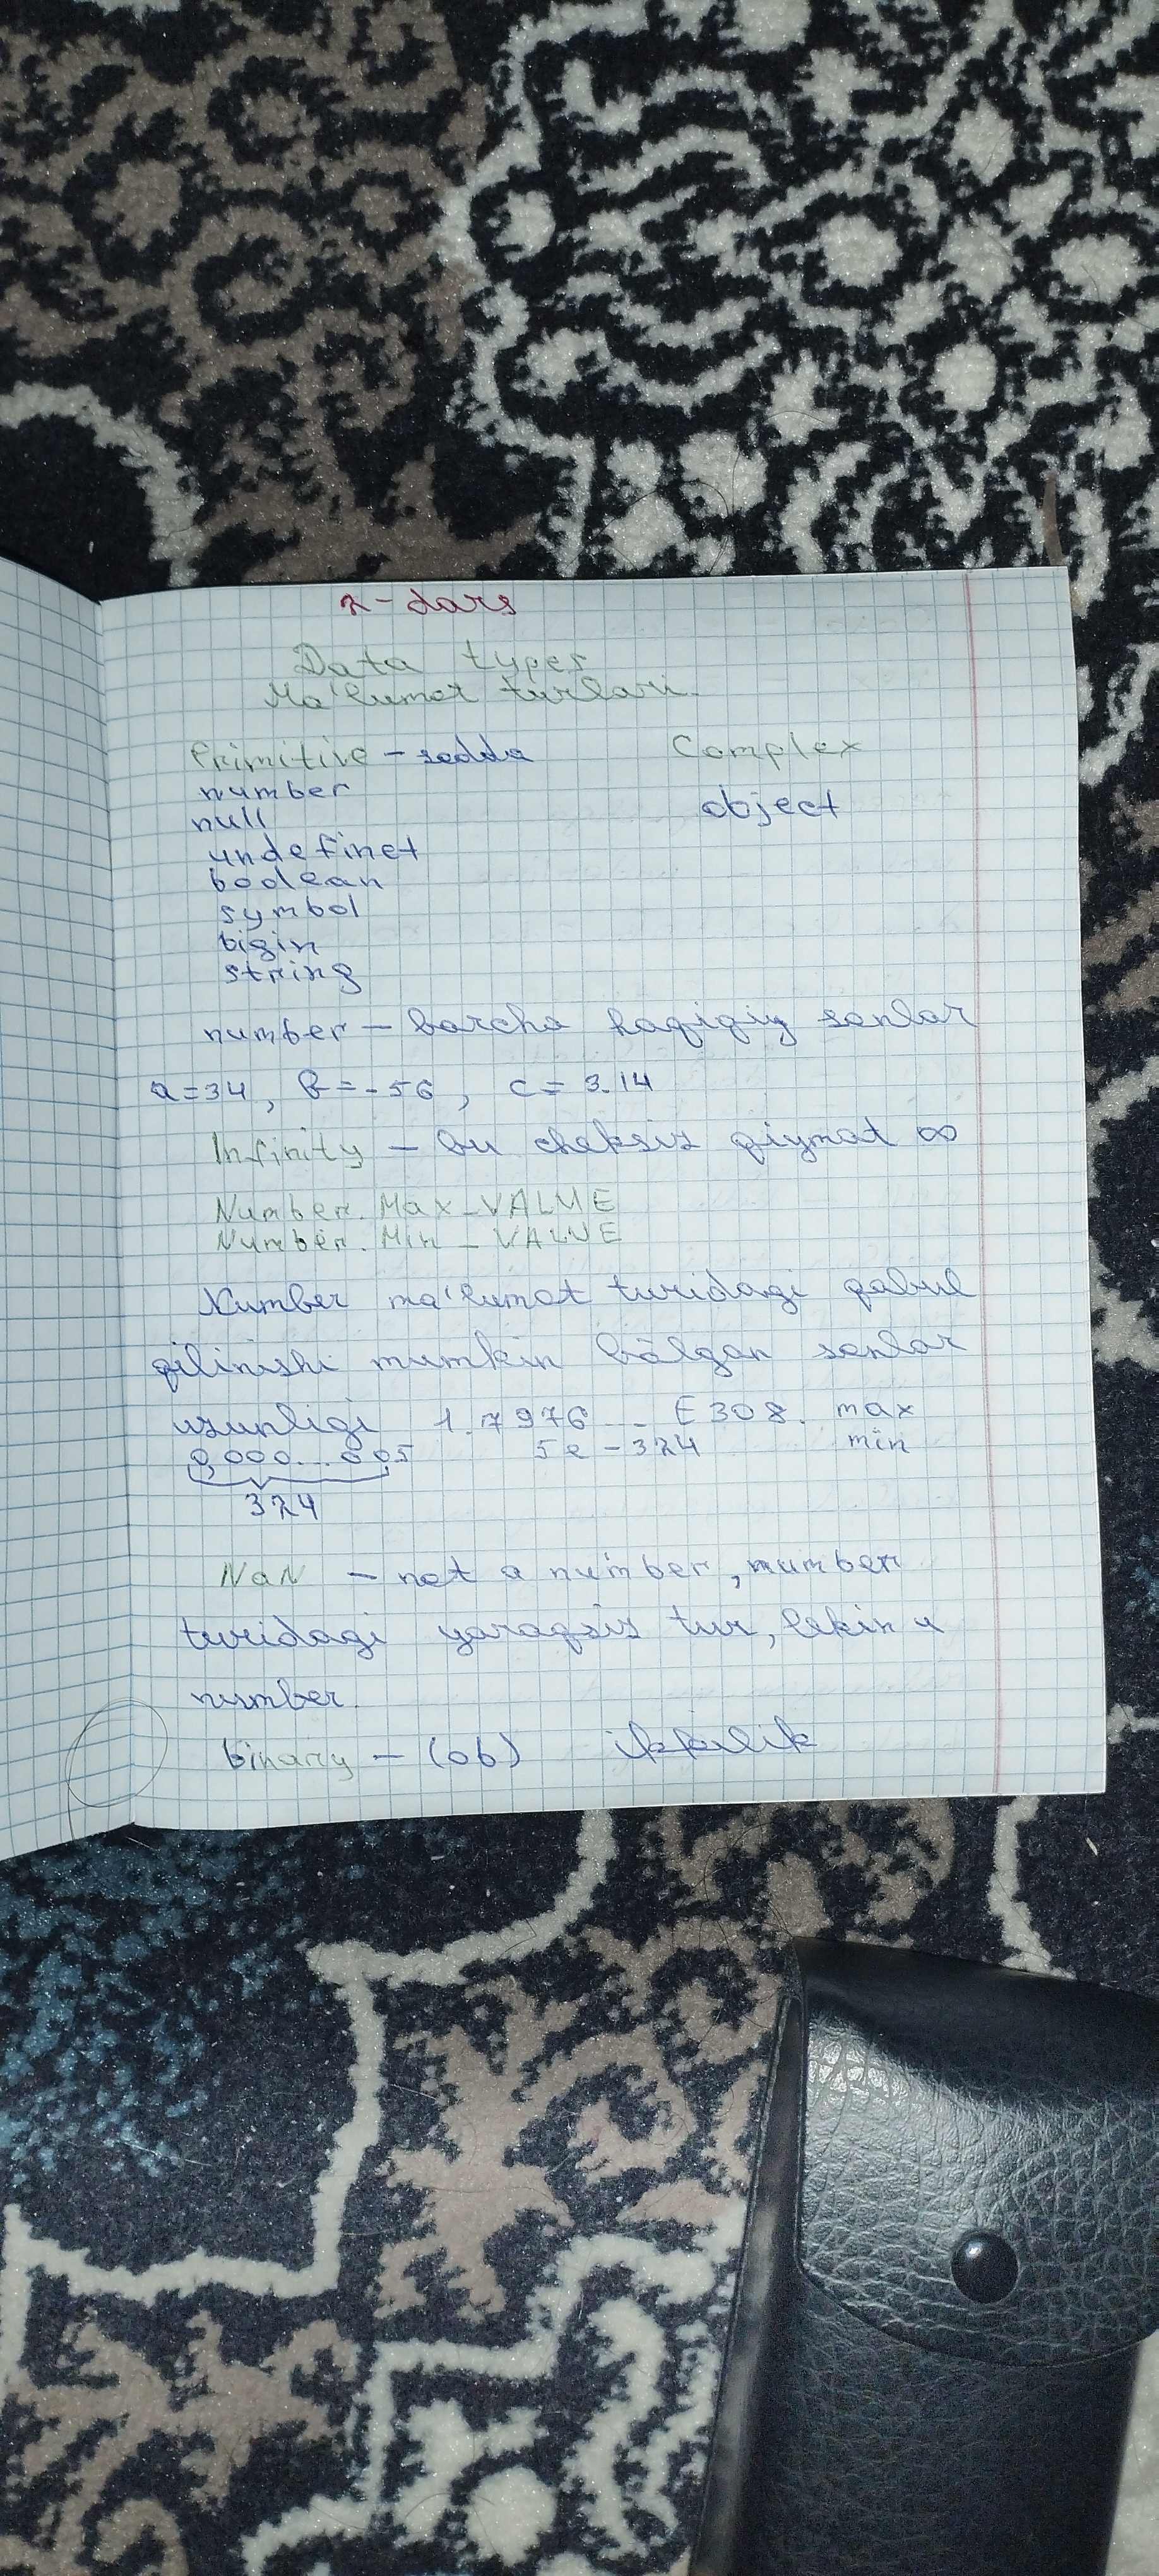 2-dars
Data types
Ma'lumot turlari.
Primitive - sodda Complex
number
object
null
undefinet
boolean
symbol
bigin
string
number - barcha haqiqiy sonlar
a=34, b=-56, c=3.14
Infinity - bu cheksiz qiymat ∞
Number.Max_VALUE
Number.Min_VALUE
Number ma'lumot turidagi qabul
qilinishi mumkin bõlgan sonlar
uzunligi 1.7976... E308. max
0,000...005 5e-324 min
324
NaN - not a number, number
turidagi yaroqsiz tur, lekin u
number.
binary - (0b) ikkilik